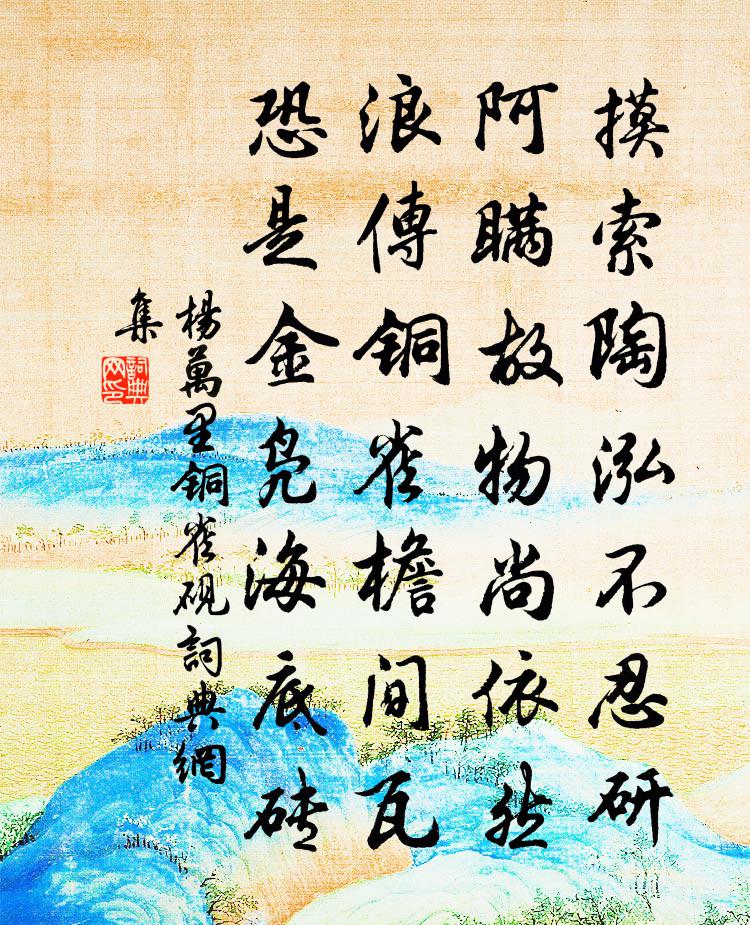 摸索陶泓不忍研
阿瞞故物尚依然
浪傳铜雀檐间瓦
恐是金凫海底砖
楊萬里铜雀砚詞典網
集
詞典网印